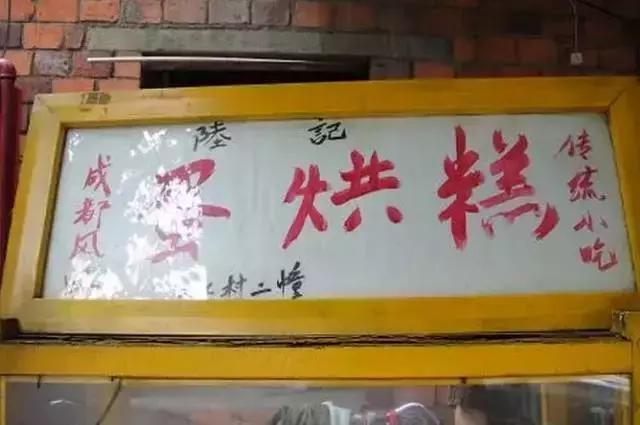 陸記
成都风
蛋烘糕
传统小吃
村二幢